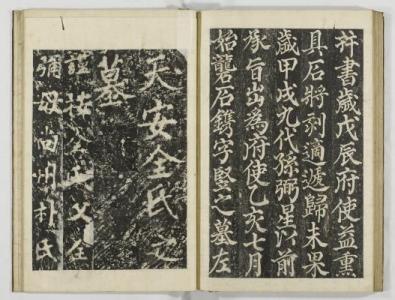 幷書歲戊辰府使益熏
具石將刻適遞歸未果
歲甲戌九代孫弼星以前
承旨出為府使乙亥七月
始礱石鐫字竪之墓左
天安全氏之
墓
父
母尚州朴氏